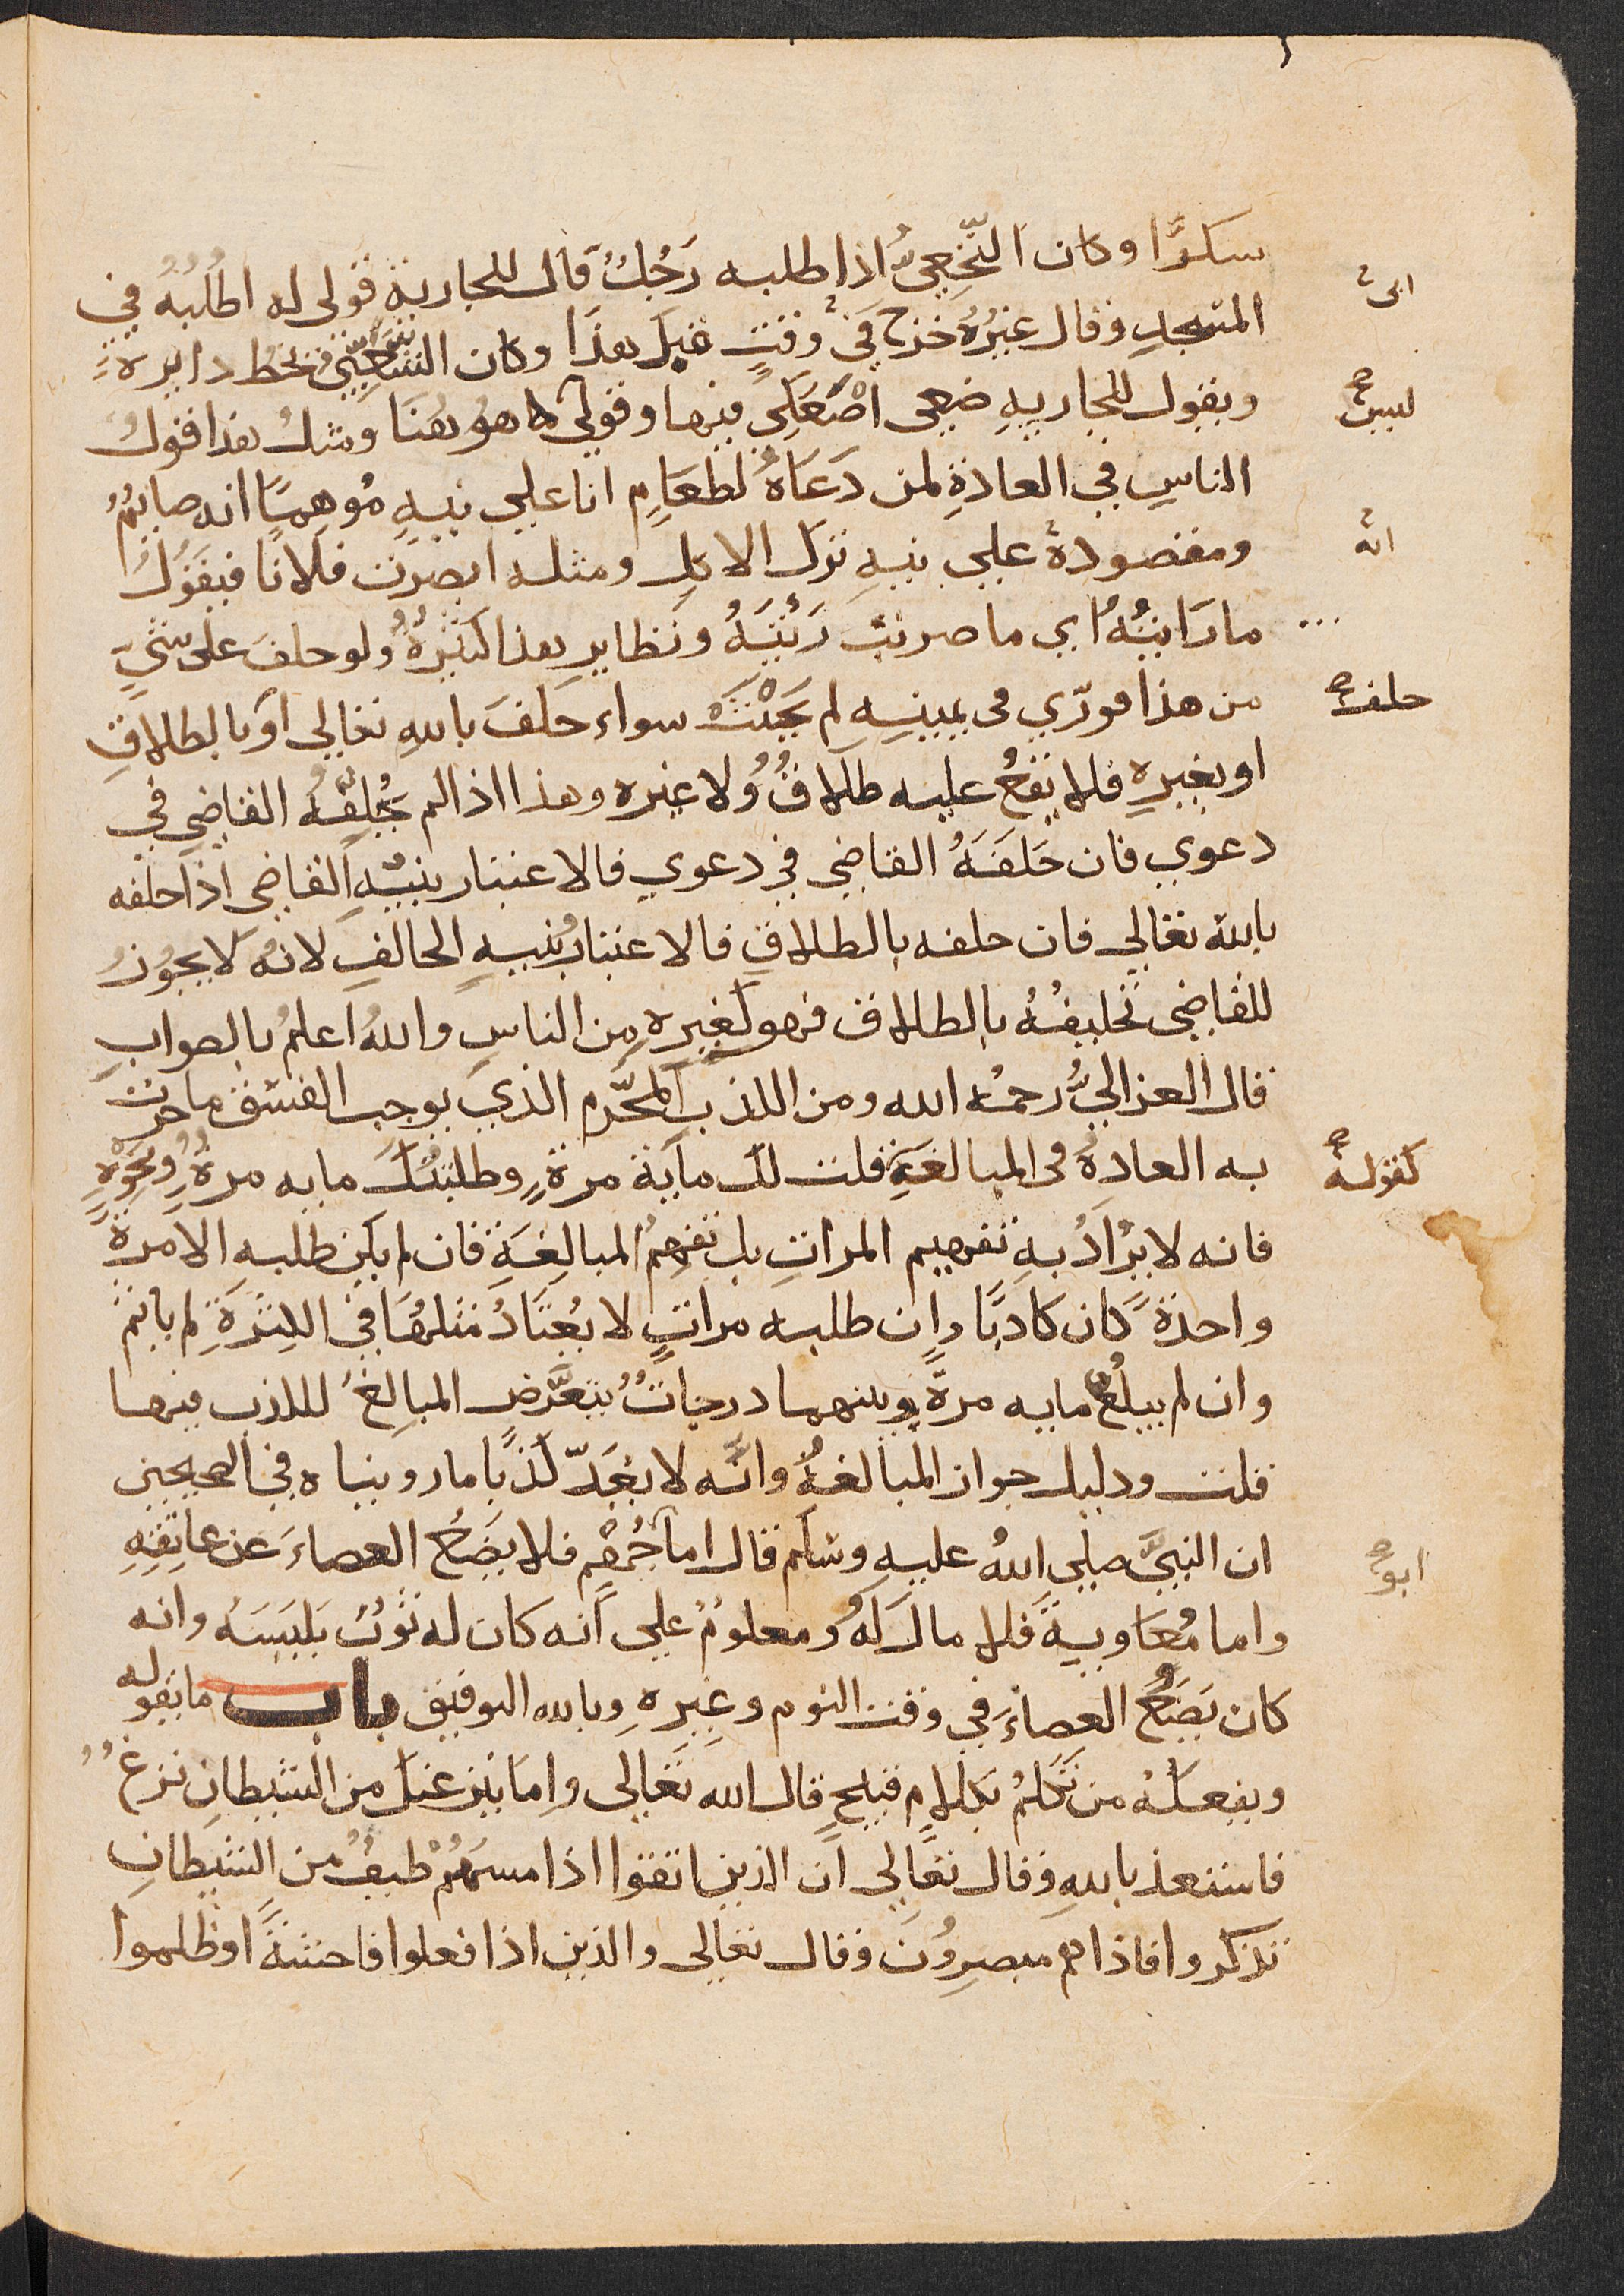 سكرًا وكان النَّخعِيُّ اذا طلبه رَجُلٌ قال للجارية قولى له اطلُبْهُ في
المسجدِ وقال غيرُهُ خرج في وقتٍ قبل هذا وكان الشعبِيّ يخطُّ دايرة
ويقول للجاريةِ ضعى اصبعك فيها وقولي ما هو هُنَا ومثلُ هذا قولُ
الناسِ في العادةِ لمن دَعَاهُ لطعَامٍ انا علي نيةٍ مُوهِمًا انه صايمٌ
ومقصودهُ علي نيةِ ترك الاكلِ ومثله ابصرت فلانًا فيقولُ
ما رَايتُهُ اي ما ضربت رِئتَهُ ونظاير هذا كثيرةٌ ولو حلف على شيءٍ
من هذا فورّي فى يمينهِ لم يحْنَثْ سواء حلفَ بالله تعالي او بالطلاقِ
او بغيره فلا يقعُ عليه طلاقٌ ولا غيره وهذا اذا لم يحُلِّفْهُ القاضِي في
دعوي فان حَلفَهُ القاضِي في دعوي فالاعتبار بنيَّةِ القاضي اذا حلفه
بالله تعالي فان حلفه بالطلاقِ فالاعتبارُ بنيةِ الحالفِ لانه لا يجوُزُ
للقاضِي تحليفُهُ بالطلاق فهو كغيرِهِ من الناسِ واللهُ اعلمُ بالصوابِ
قال الغزاليُّ رحمهُ الله ومن الكذب المحَّرمِ الذي يوجب الفسْقَ ما جرت
به العادةُ فى المبالغةِ قلت لك مايَةَ مرةٍ وطلبتُكَ مايه مرةٍ ونحوْهِ
فانه لا يُرَادُ به تفهيم المراتِ بل تفهِيمُ المبالغةِ فان لم يكن طلبه الا مرةً
واحدةً كان كاذبًا وان طلبه مراتٍ لا يُعْتَادُ مثلُهَا في الكثرَةِ لم ياثم
وان لم يبلُغْ مايه مرةً وبينهما درجاتٌ يتعَّرض المبالِغُ للكذب فيها
قلت ودليل جواز المبالغةِ وانَّه لا يُعَدّ كذبًا ما رويناه في الصحيحين
ان النبيَّ صلي اللهُ عليه وسلم قال اما جُهْمٍ فلا يضَعُ العصاءَ عن عاتِقِهِ
واما مُعَاويةُ فلا مال لهُ ومعلومٌ علي انه كان له ثوبٌ يلبَسَهُ وانه
كان يَضَعُ العصاءَ في وقت النوم وغيرِهِ وبالله التوفيق باب ما يقوله
ويفعلهُ من تكلمُ بكلامٍ قبيحٍ قال الله تعالى واما ينزغنك من الشيطانِ نزغٌ
فاستعذ باللهِ وقال تعالي ان الذين اتقوا اذا مسهُمْ طيفٌ من الشيطانِ
تذكروا فاذا هم مبصِرُونَ وقال تعالي والذين اذا فعلوا فاحشةً او ظلموا
انه
حلف
كقوله
ابو